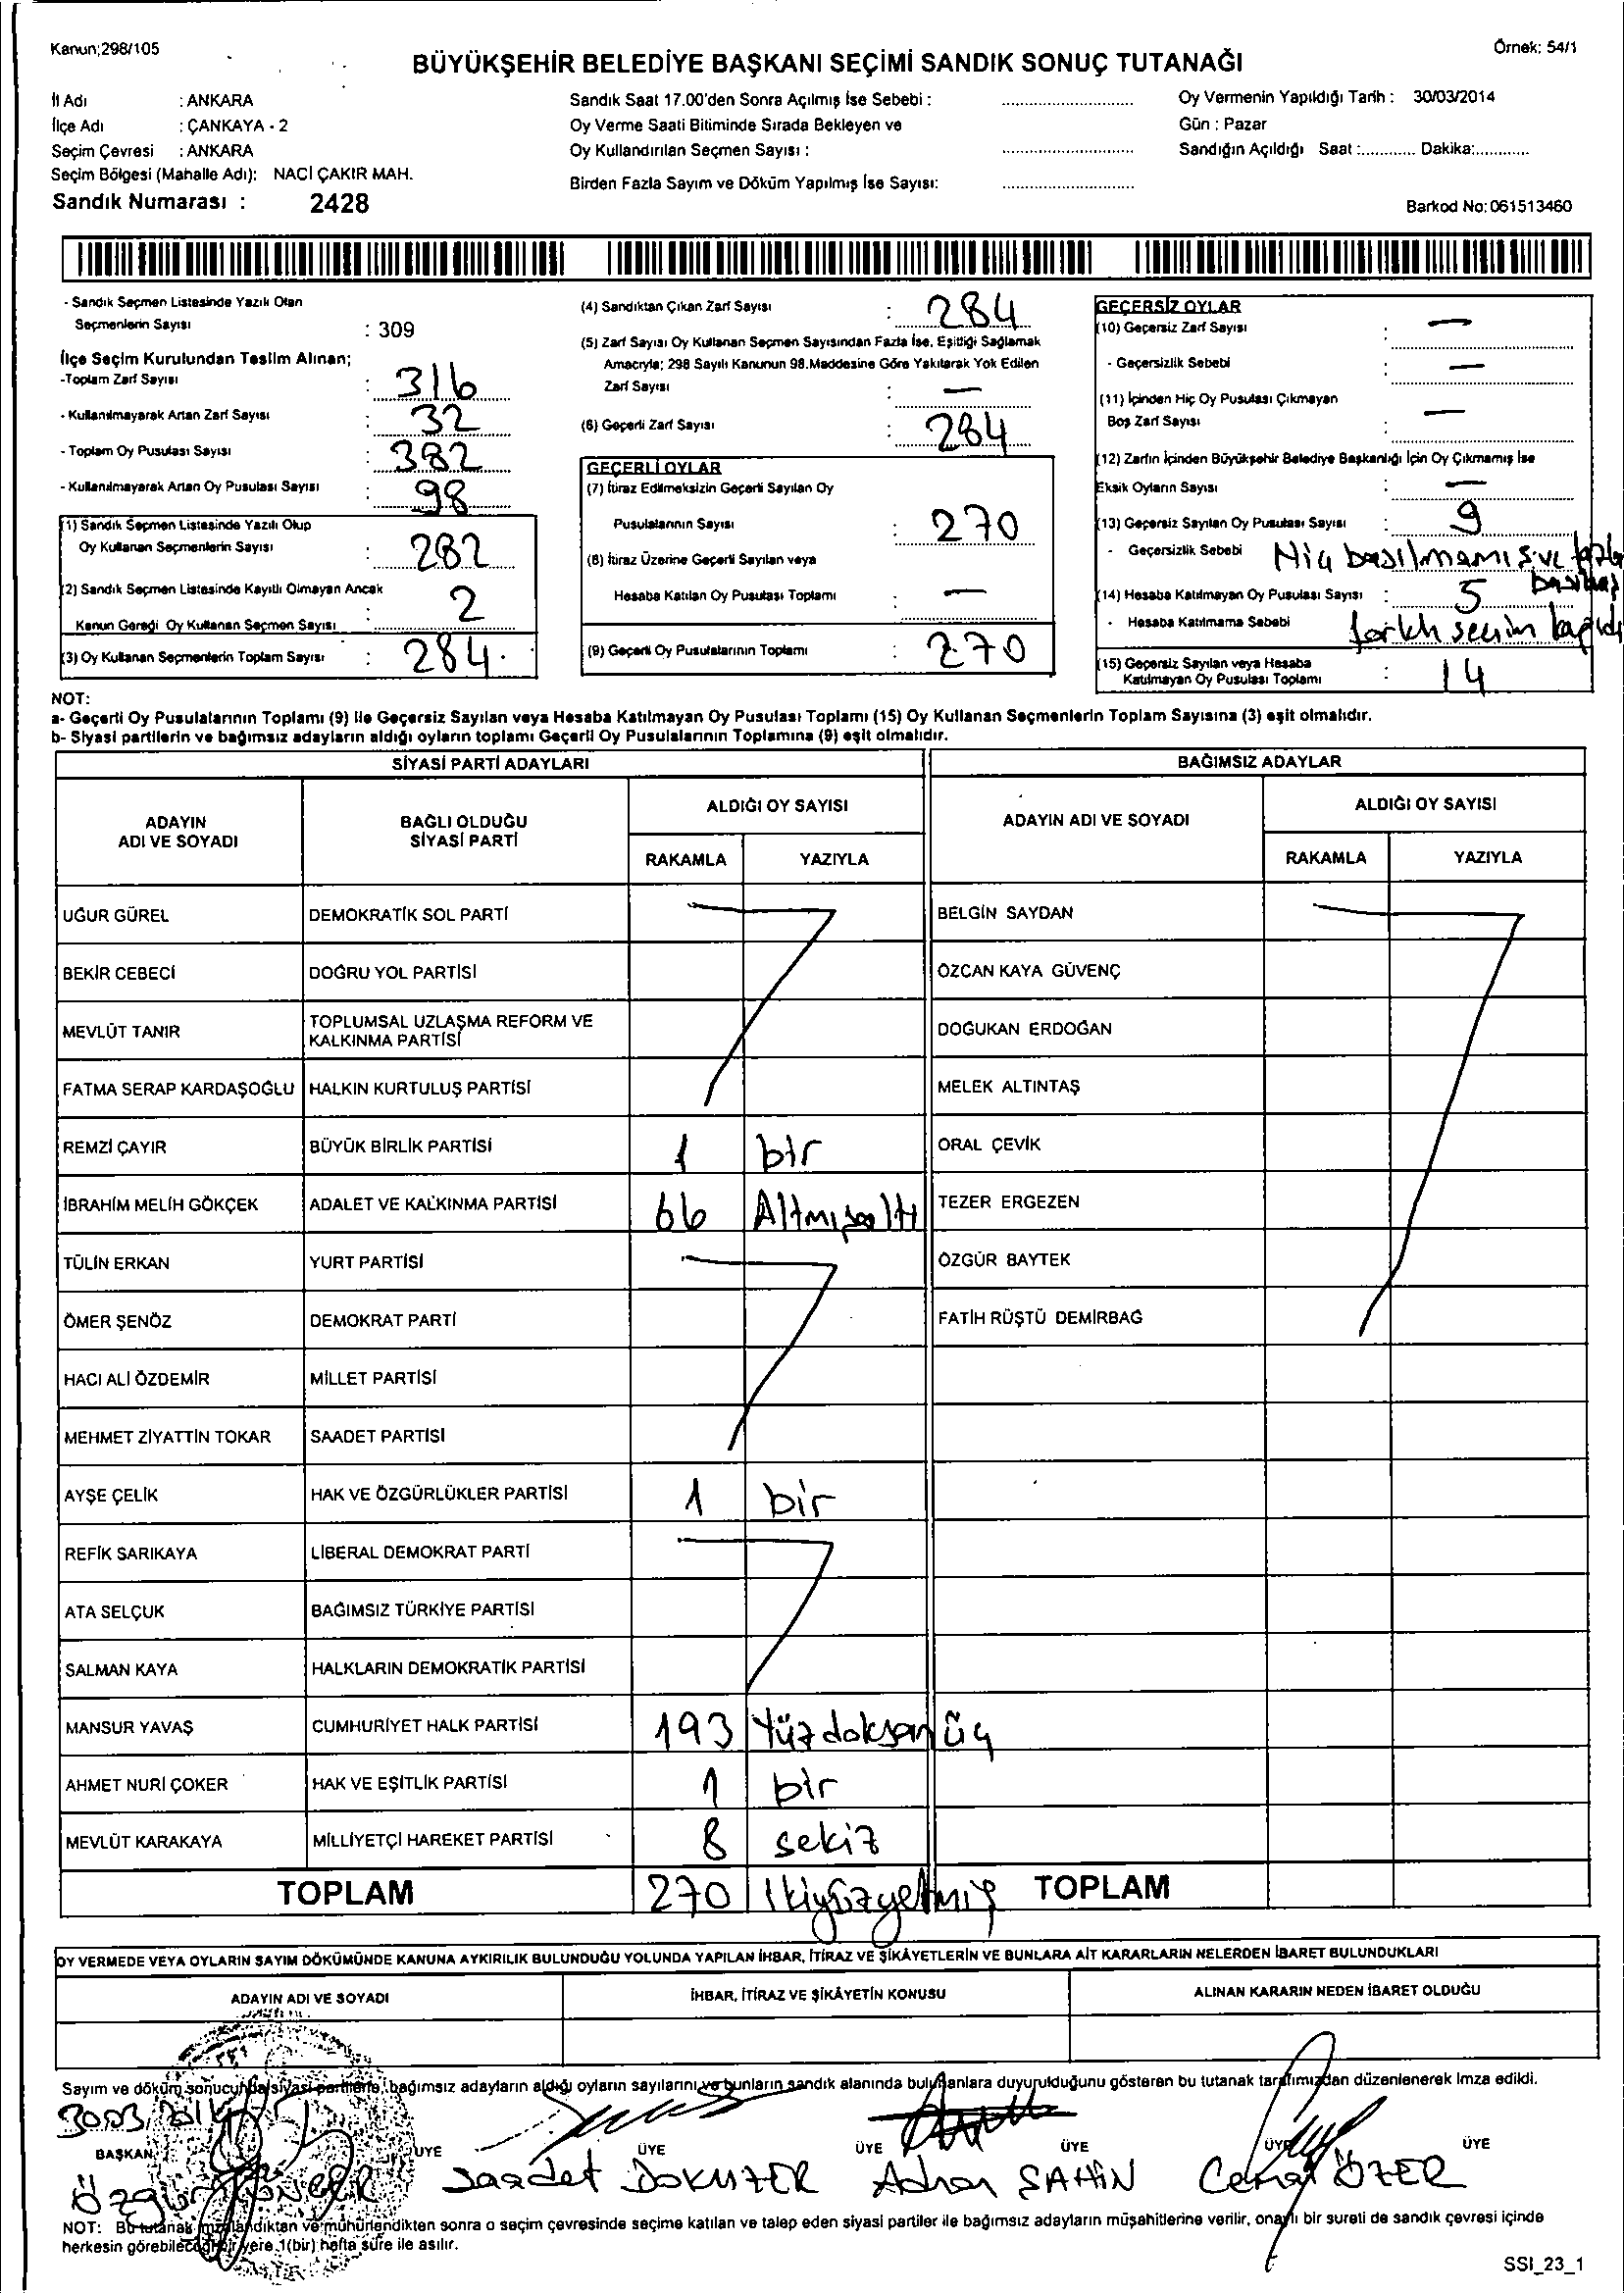 Kanun;298/105
Örnek: 54/1
BÜYÜKŞEHİR BELEDİYE BAŞKANI SEÇİMİ SANDIK SONUÇ TUTANAĞI
İl Adı : ANKARA
İlçe Adı : ÇANKAYA - 2
Seçim Çevresi : ANKARA
Seçim Bölgesi (Mahalle Adı): NACİ ÇAKIR MAH.
Sandık Numarası : 2428
Sandık Saat 17.00'den Sonra Açılmış İse Sebebi : ..............................
Oy Verme Saati Bitiminde Sırada Bekleyen ve
Oy Kullandırılan Seçmen Sayısı : ..............................
Birden Fazla Sayım ve Döküm Yapılmış İse Sayısı: ..............................
Oy Vermenin Yapıldığı Tarih : 30/03/2014
Gün : Pazar
Sandığın Açıldığı Saat :............ Dakika:............
Barkod No: 061513460
- Sandık Seçmen Listesinde Yazılı Olan
Seçmenlerin Sayısı : 309
İlçe Seçim Kurulundan Teslim Alınan;
-Toplam Zarf Sayısı : 316
- Kullanılmayarak Artan Zarf Sayısı : 32
- Toplam Oy Pusulası Sayısı : 382
- Kullanılmayarak Artan Oy Pusulası Sayısı : 98
(1) Sandık Seçmen Listesinde Yazılı Olup
Oy Kullanan Seçmenlerin Sayısı : 282
(2) Sandık Seçmen Listesinde Kayıtlı Olmayan Ancak
Kanun Gereği Oy Kullanan Seçmen Sayısı : 2
(3) Oy Kullanan Seçmenlerin Toplam Sayısı : 284
(4) Sandıktan Çıkan Zarf Sayısı : 284
(5) Zarf Sayısı Oy Kullanan Seçmen Sayısından Fazla İse, Eşitliği Sağlamak
Amacıyla; 298 Sayılı Kanunun 98.Maddesine Göre Yakılarak Yok Edilen
Zarf Sayısı : —
(6) Geçerli Zarf Sayısı : 284
GEÇERLİ OYLAR
(7) İtiraz Edilmeksizin Geçerli Sayılan Oy
Pusulalarının Sayısı : 270
(8) İtiraz Üzerine Geçerli Sayılan veya
Hesaba Katılan Oy Pusulası Toplamı : —
(9) Geçerli Oy Pusulalarının Toplamı : 270
GEÇERSİZ OYLAR
(10) Geçersiz Zarf Sayısı : —
- Geçersizlik Sebebi : —
(11) İçinden Hiç Oy Pusulası Çıkmayan
Boş Zarf Sayısı : —
(12) Zarfın İçinden Büyükşehir Belediye Başkanlığı İçin Oy Çıkmamış İse
Eksik Oyların Sayısı : —
(13) Geçersiz Sayılan Oy Pusulası Sayısı : 9
- Geçersizlik Sebebi Hiç basılmamış ve fazla
basılmış
(14) Hesaba Katılmayan Oy Pusulası Sayısı : 5
- Hesaba Katılmama Sebebi farklı seçim kağıdı
(15) Geçersiz Sayılan veya Hesaba
Katılmayan Oy Pusulası Toplamı : 14
NOT:
a- Geçerli Oy Pusulalarının Toplamı (9) İle Geçersiz Sayılan veya Hesaba Katılmayan Oy Pusulası Toplamı (15) Oy Kullanan Seçmenlerin Toplam Sayısına (3) eşit olmalıdır.
b- Siyasi partilerin ve bağımsız adayların aldığı oyların toplamı Geçerli Oy Pusulalarının Toplamına (9) eşit olmalıdır.
SİYASİ PARTİ ADAYLARI
BAĞIMSIZ ADAYLAR
ADAYIN ADI VE SOYADI
BAĞLI OLDUĞU SİYASİ PARTİ
ALDIĞI OY SAYISI
RAKAMLA YAZIYLA
ADAYIN ADI VE SOYADI
ALDIĞI OY SAYISI
RAKAMLA YAZIYLA
UĞUR GÜREL DEMOKRATİK SOL PARTİ BELGİN SAYDAN
BEKİR CEBECİ DOĞRU YOL PARTİSİ ÖZCAN KAYA GÜVENÇ
MEVLÜT TANIR TOPLUMSAL UZLAŞMA REFORM VE KALKINMA PARTİSİ DOĞUKAN ERDOĞAN
FATMA SERAP KARDAŞOĞLU HALKIN KURTULUŞ PARTİSİ MELEK ALTINTAŞ
REMZİ ÇAYIR BÜYÜK BİRLİK PARTİSİ 1 bir ORAL ÇEVİK
İBRAHİM MELİH GÖKÇEK ADALET VE KALKINMA PARTİSİ 66 Altmışaltı TEZER ERGEZEN
TÜLİN ERKAN YURT PARTİSİ ÖZGÜR BAYTEK
ÖMER ŞENÖZ DEMOKRAT PARTİ FATİH RÜŞTÜ DEMİRBAĞ
HACI ALİ ÖZDEMİR MİLLET PARTİSİ
MEHMET ZİYATTİN TOKAR SAADET PARTİSİ
AYŞE ÇELİK HAK VE ÖZGÜRLÜKLER PARTİSİ 1 bir
REFİK SARIKAYA LİBERAL DEMOKRAT PARTİ
ATA SELÇUK BAĞIMSIZ TÜRKİYE PARTİSİ
SALMAN KAYA HALKLARIN DEMOKRATİK PARTİSİ
MANSUR YAVAŞ CUMHURİYET HALK PARTİSİ 193 Yüzdoksanüç
AHMET NURİ ÇOKER HAK VE EŞİTLİK PARTİSİ 1 bir
MEVLÜT KARAKAYA MİLLİYETÇİ HAREKET PARTİSİ 8 sekiz
TOPLAM 270 İkiyüzyetmiş TOPLAM
OY VERMEDE VEYA OYLARIN SAYIM DÖKÜMÜNDE KANUNA AYKIRILIK BULUNDUĞU YOLUNDA YAPILAN İHBAR, İTİRAZ VE ŞİKÂYETLERİN VE BUNLARA AİT KARARLARIN NELERDEN İBARET BULUNDUKLARI
ADAYIN ADI VE SOYADI İHBAR, İTİRAZ VE ŞİKÂYETİN KONUSU ALINAN KARARIN NEDEN İBARET OLDUĞU
Sayım ve döküm sonucunda siyasi partilerle, bağımsız adayların aldığı oyların sayılarını ve bunların sandık alanında bulunanlara duyurulduğunu gösteren bu tutanak tarafımızdan düzenlenerek imza edildi.
30.03.2014
BAŞKAN ÜYE ÜYE ÜYE ÜYE ÜYE ÜYE
Özgür Saadet DOKUZER Adnan ŞAHİN Cemal ÖZER
NOT: Bu tutanak imzalandıktan ve mühürlendikten sonra o seçim çevresinde seçime katılan ve talep eden siyasi partiler ile bağımsız adayların müşahitlerine verilir, onaylı bir sureti de sandık çevresi içinde
herkesin görebileceği bir yere 1(bir) hafta süre ile asılır.
SSI_23_1